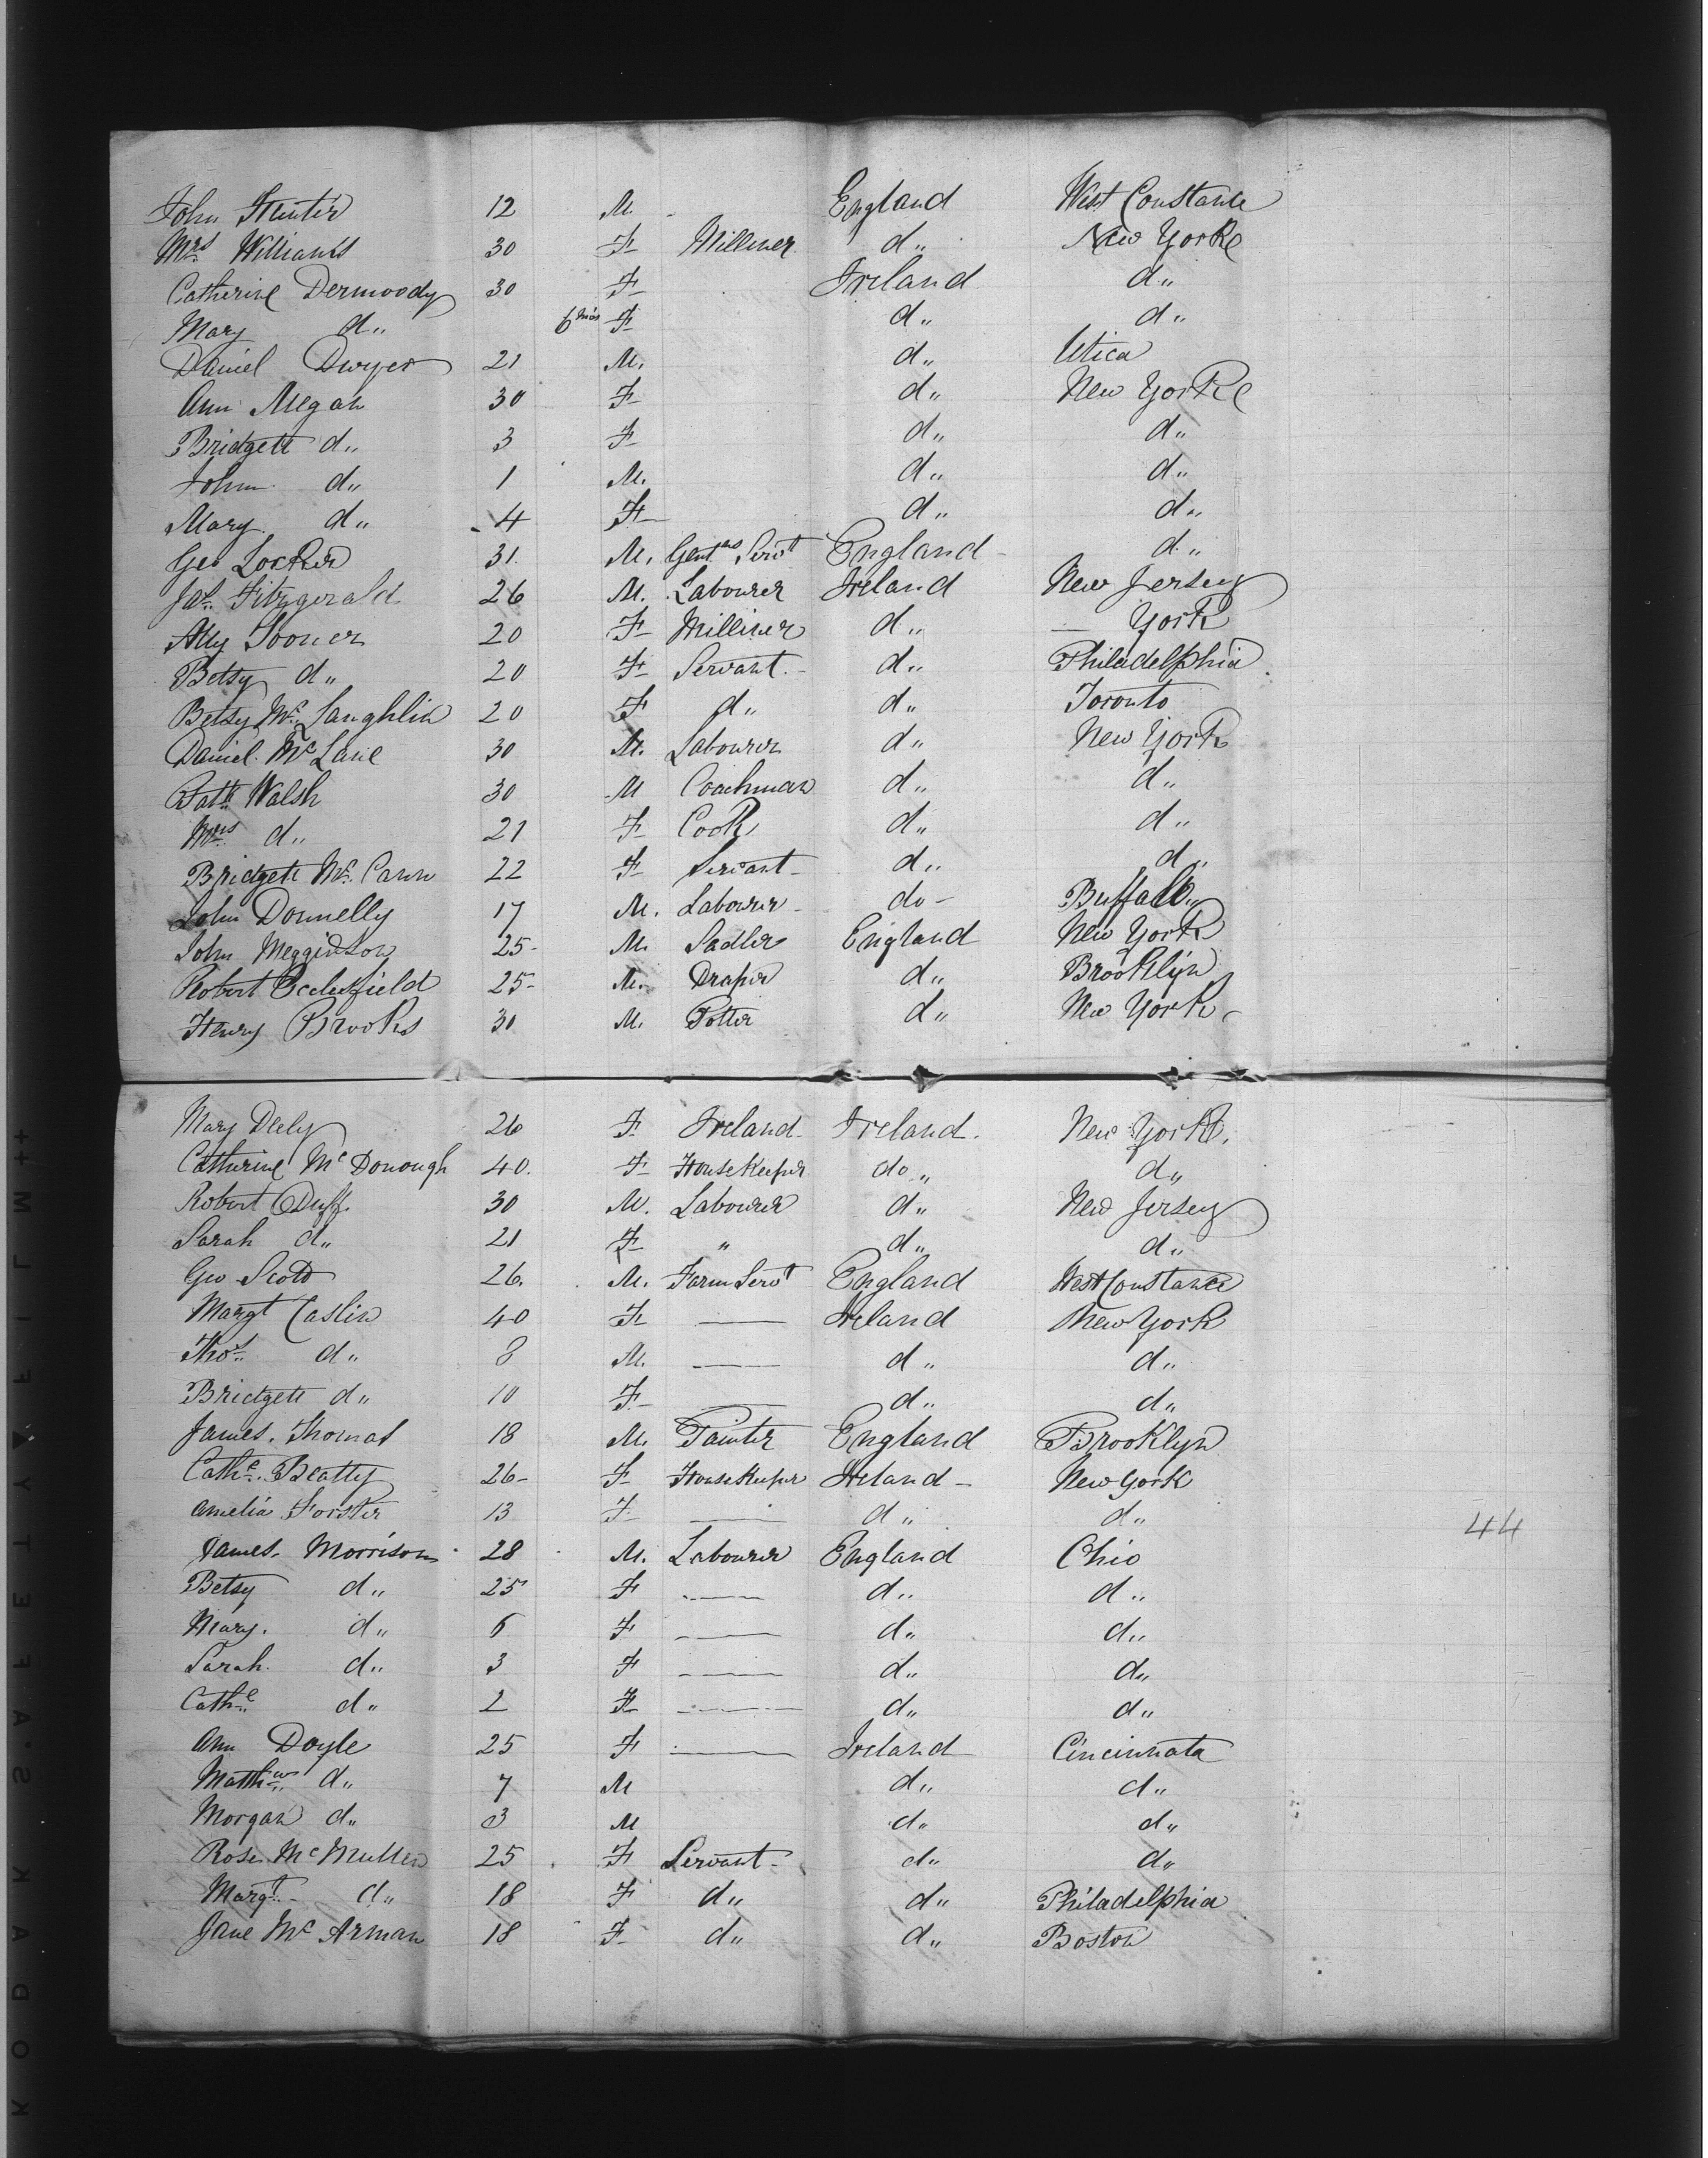 John Hunter 12 M. - England West Constable
Mrs Williams 30 F Milliner d,, New York
Catherine Dermoody 30 F Ireland d,,
Mary d,, 6 mos F d,, d,,
Daniel Dwyer 21 M. d,, Utica
Ann Megan 30 F d,, New York
Bridgett d,, 3 F d,, d,,
John d,, 1 M. d,, d,,
Mary d,, 4 F d,, d,,
Geo Locker 31. M. Gentns Servt England d,,
Jas. Fitzgerald 26 M. Labourer Ireland New Jersey
Ally Sooner 20 F Milliner d,, — York
Betsy d,, 20 F Servant. d,, Philadelphia
Betsy Mc Laughlin 20 F d,, d,, Toronto
Daniel Mc Lane 30 M. Labourer d,, New York
Patk Walsh 30 M Coachman d,, d,,
Mrs d,, 21 F Cook d,, d,,
Bridgett Mc. Cann 22 F Servant d,, d,,
John Donnelly 17 M. Labourer do - Buffalo,,
John Megginson 25 M. Sadler England New York
Robert 25 M. Draper d,, Brooklyn
Henry Brooks 30 M. Potter d,, New York
Mary Deely 26 F. Ireland Ireland. New York.
Catherine Mc Donough 40. F House Keeper do ,, d,,
Robert Duff. 30 M. Labourer d,, New Jersey
Sarah d,, 21 F ,, d,, d,,
Geo Scott 26. M. Farm Servt England West Constance
Margt Caslin 40 F — Ireland New York
Thos. d,, 8 M. — d,, d,,
Bridgett d,, 10 F. — d,, d,,
James. Thomas 18 M. Painter England Brooklyn
Cathe. Beatty 26 F House Keeper Ireland New York
Amelia Forster 13 F — d,, d,,
James Morrison 28 M. Labourer England Ohio
Betsy d,, 25 F — d,, d,,
Mary. d,, 5 F — d,, d,,
Sarah. d,, 3 F — d,, d,,
Cathe d,, 2 F — d,, d,,
Ann Doyle 25 F — Ireland Cincinnata
Matthw d,, 7 M d,, d,,
Morgan d,, 3 M d,, d,,
Rose Mc Mullen 25 F Servant d,, d,,
Margt d,, 18 F d,, d,, Philadelphia
Jane Mc Arman 18 F d,, d,, Boston
44
KODAK·SAFETY▲FILM